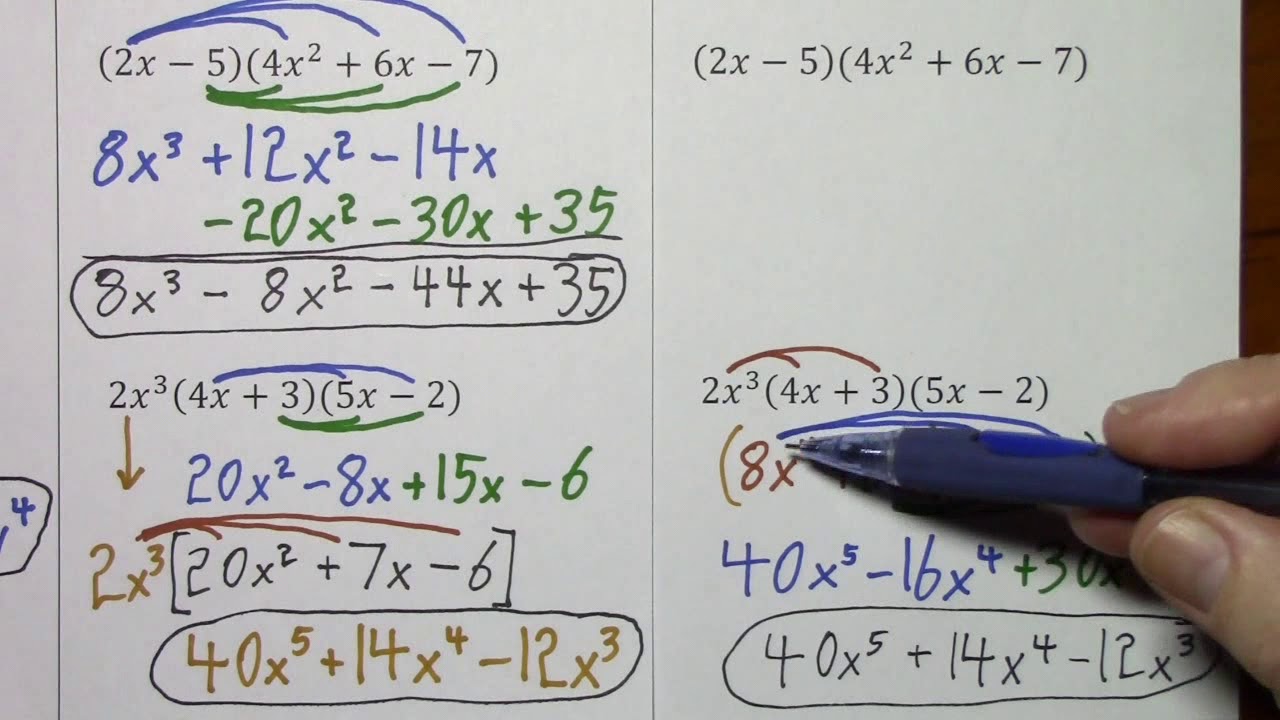 (2x − 5)(4x² + 6x − 7)
8x³ + 12x² − 14x
− 20x² − 30x + 35
8x³ − 8x² − 44x + 35
2x³(4x + 3)(5x − 2)
20x² − 8x + 15x − 6
2x³[20x² + 7x − 6]
40x⁵ + 14x⁴ − 12x³
4
(2x − 5)(4x² + 6x − 7)
2x³(4x + 3)(5x − 2)
(8x
40x⁵ − 16x⁴ + 30x
40x⁵ + 14x⁴ − 12x³